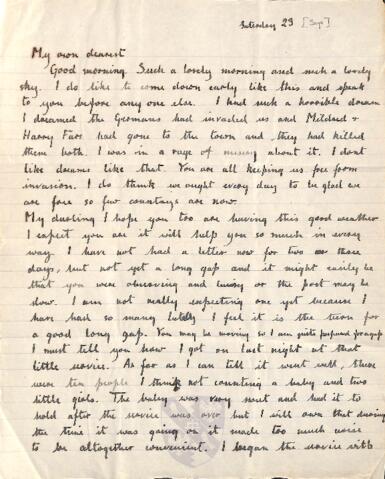 Saturday 23 [Sept]
My own dearest
Good morning. Such a lovely morning and such a lovely
sky. I do like to come down early like this and speak
to you before any one else. I had such a horrible dream
I dreamed the Germans had invaded us and Mildred &
Harry Farr had gone to the town and they had killed
them both. I was in a rage of misery about it. I dont
like dreams like that. You are all keeping us free from
invasion. I do think we ought every day to be glad we
are free so few countries are now.
My darling I hope you too are having this good weather
I expect you are it will help you so much in every
way. I have not had a letter now for two or three
days, but not yet a long gap and it might easily be
that you were moving and busy or the post may be
slow. I am not really expecting one yet because I
have had so many lately I feel it is the turn for
a good long gap. You may be moving so I am quite prepared for a gap
I must tell you how I got on last night at that
little service. As far as I can tell it went well, there
were ten people I think not counting a baby and two
little girls. The baby was very sweet and had it to
hold after the service was over but I will own that during
the time it was going on it made too much noise
to be altogether convenient. I began the service with